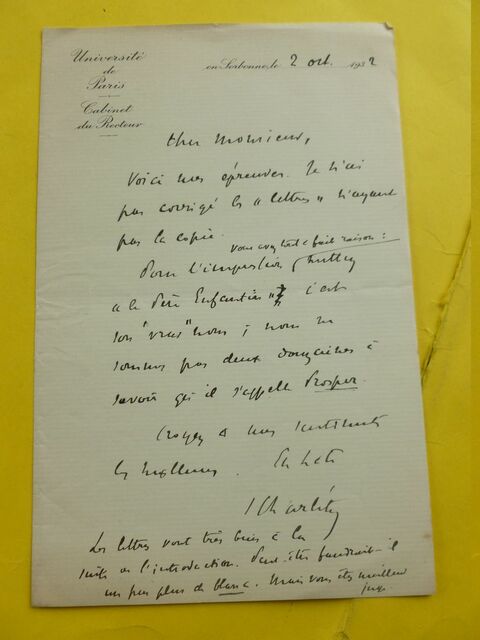 Université
de
Paris
Cabinet
du Recteur
en Sorbonne, le 2 oct. 1932
Cher Monsieur,
Voici mes épreuves. Je n'ai
pas corrigé les "lettres" n'ayant
pas la copie.
vous avez tout à fait raison :
Pour l'impression, mettez
"le Père Enfantin" ; c'est
son "vrai" nom ; nous ne
sommes pas deux douzaines à
savoir qu'il s'appelle Prosper.
Croyez à mes sentiments
les meilleurs. En hâte
S Charléty
Les lettres vont très bien à la
suite de l'introduction. Peut-être faudrait-il
un peu plus de blanc. Mais vous êtes meilleur
juge